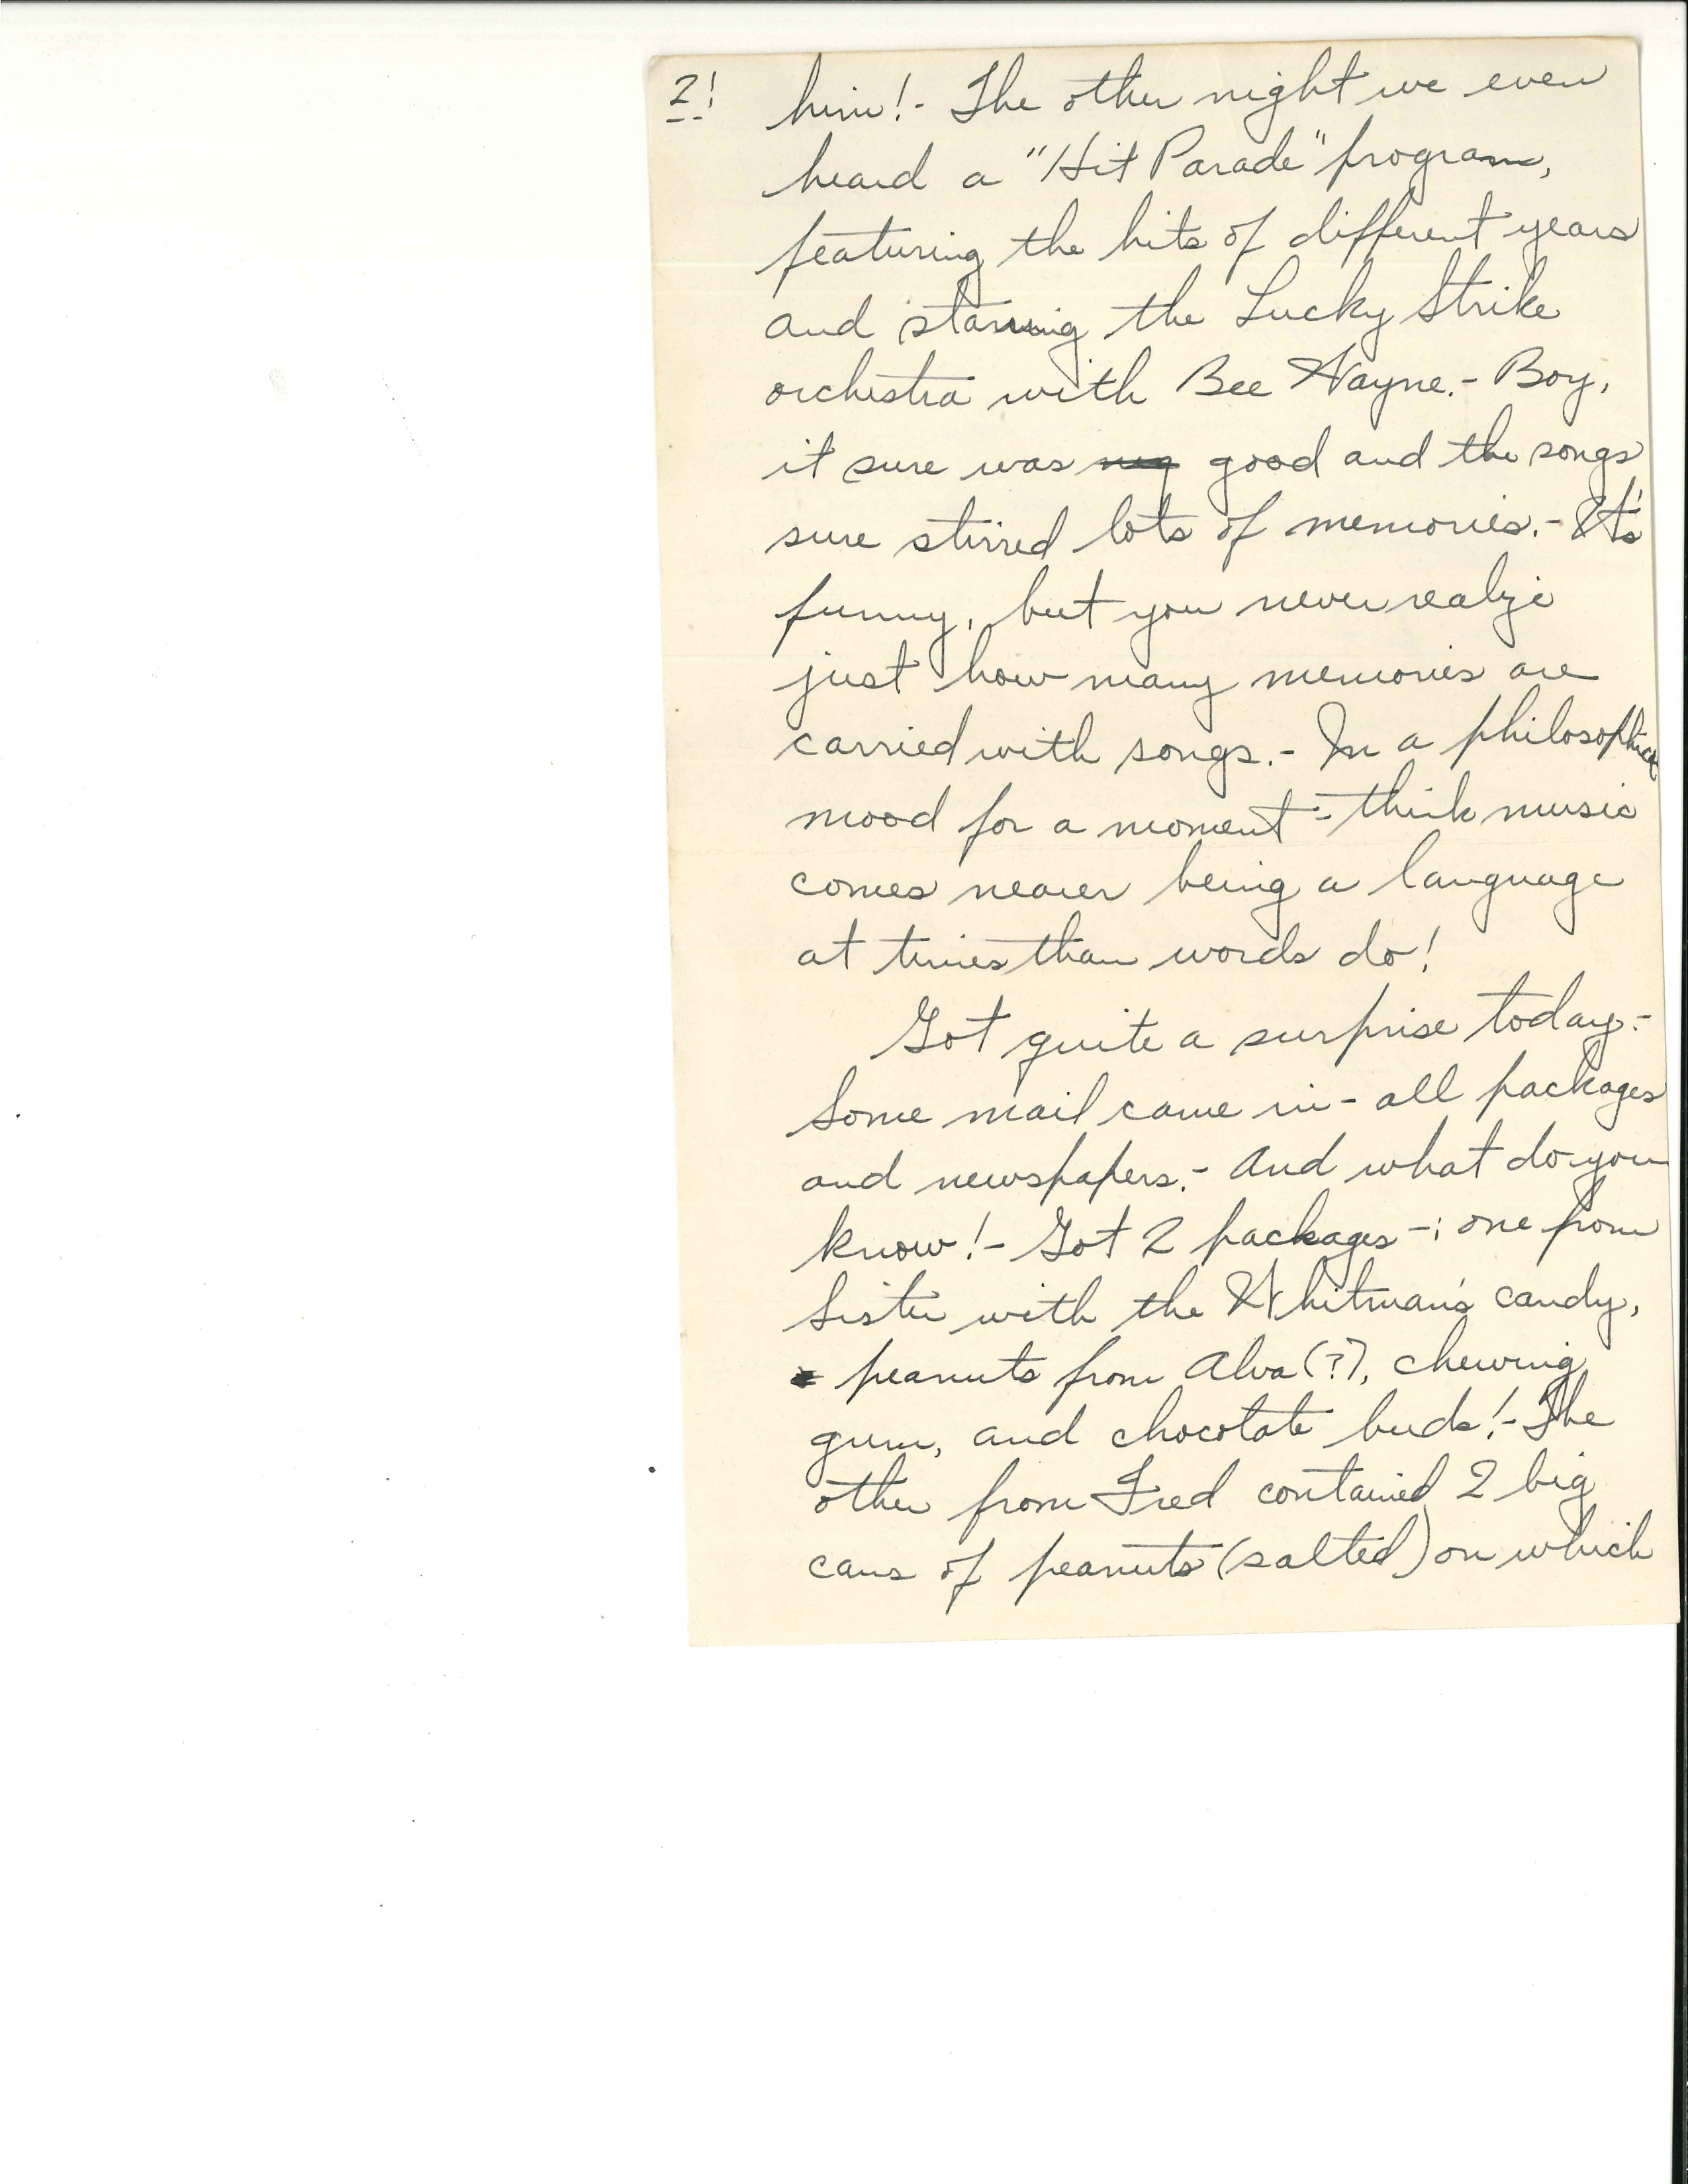 2! him! - The other night we even
heard a "Hit Parade" program,
featuring the hits of different years
and starring the Lucky Strike
orchestra with Bee Wayne. - Boy,
it sure was good and the songs
sure stirred lots of memories. - It's
funny, but you never realize
just how many memories are
carried with songs. - In a philosophical
mood for a moment - think music
comes nearer being a language
at times than words do!
Got quite a surprise today. -
Some mail came in - all packages
and newspapers. - And what do you
know! - Got 2 packages - ; one from
Sister with the Whitman's candy,
peanuts from Alva (?), chewing
gum, and chocolate buds! - The
other from Fred contained 2 big
cans of peanuts (salted) on which